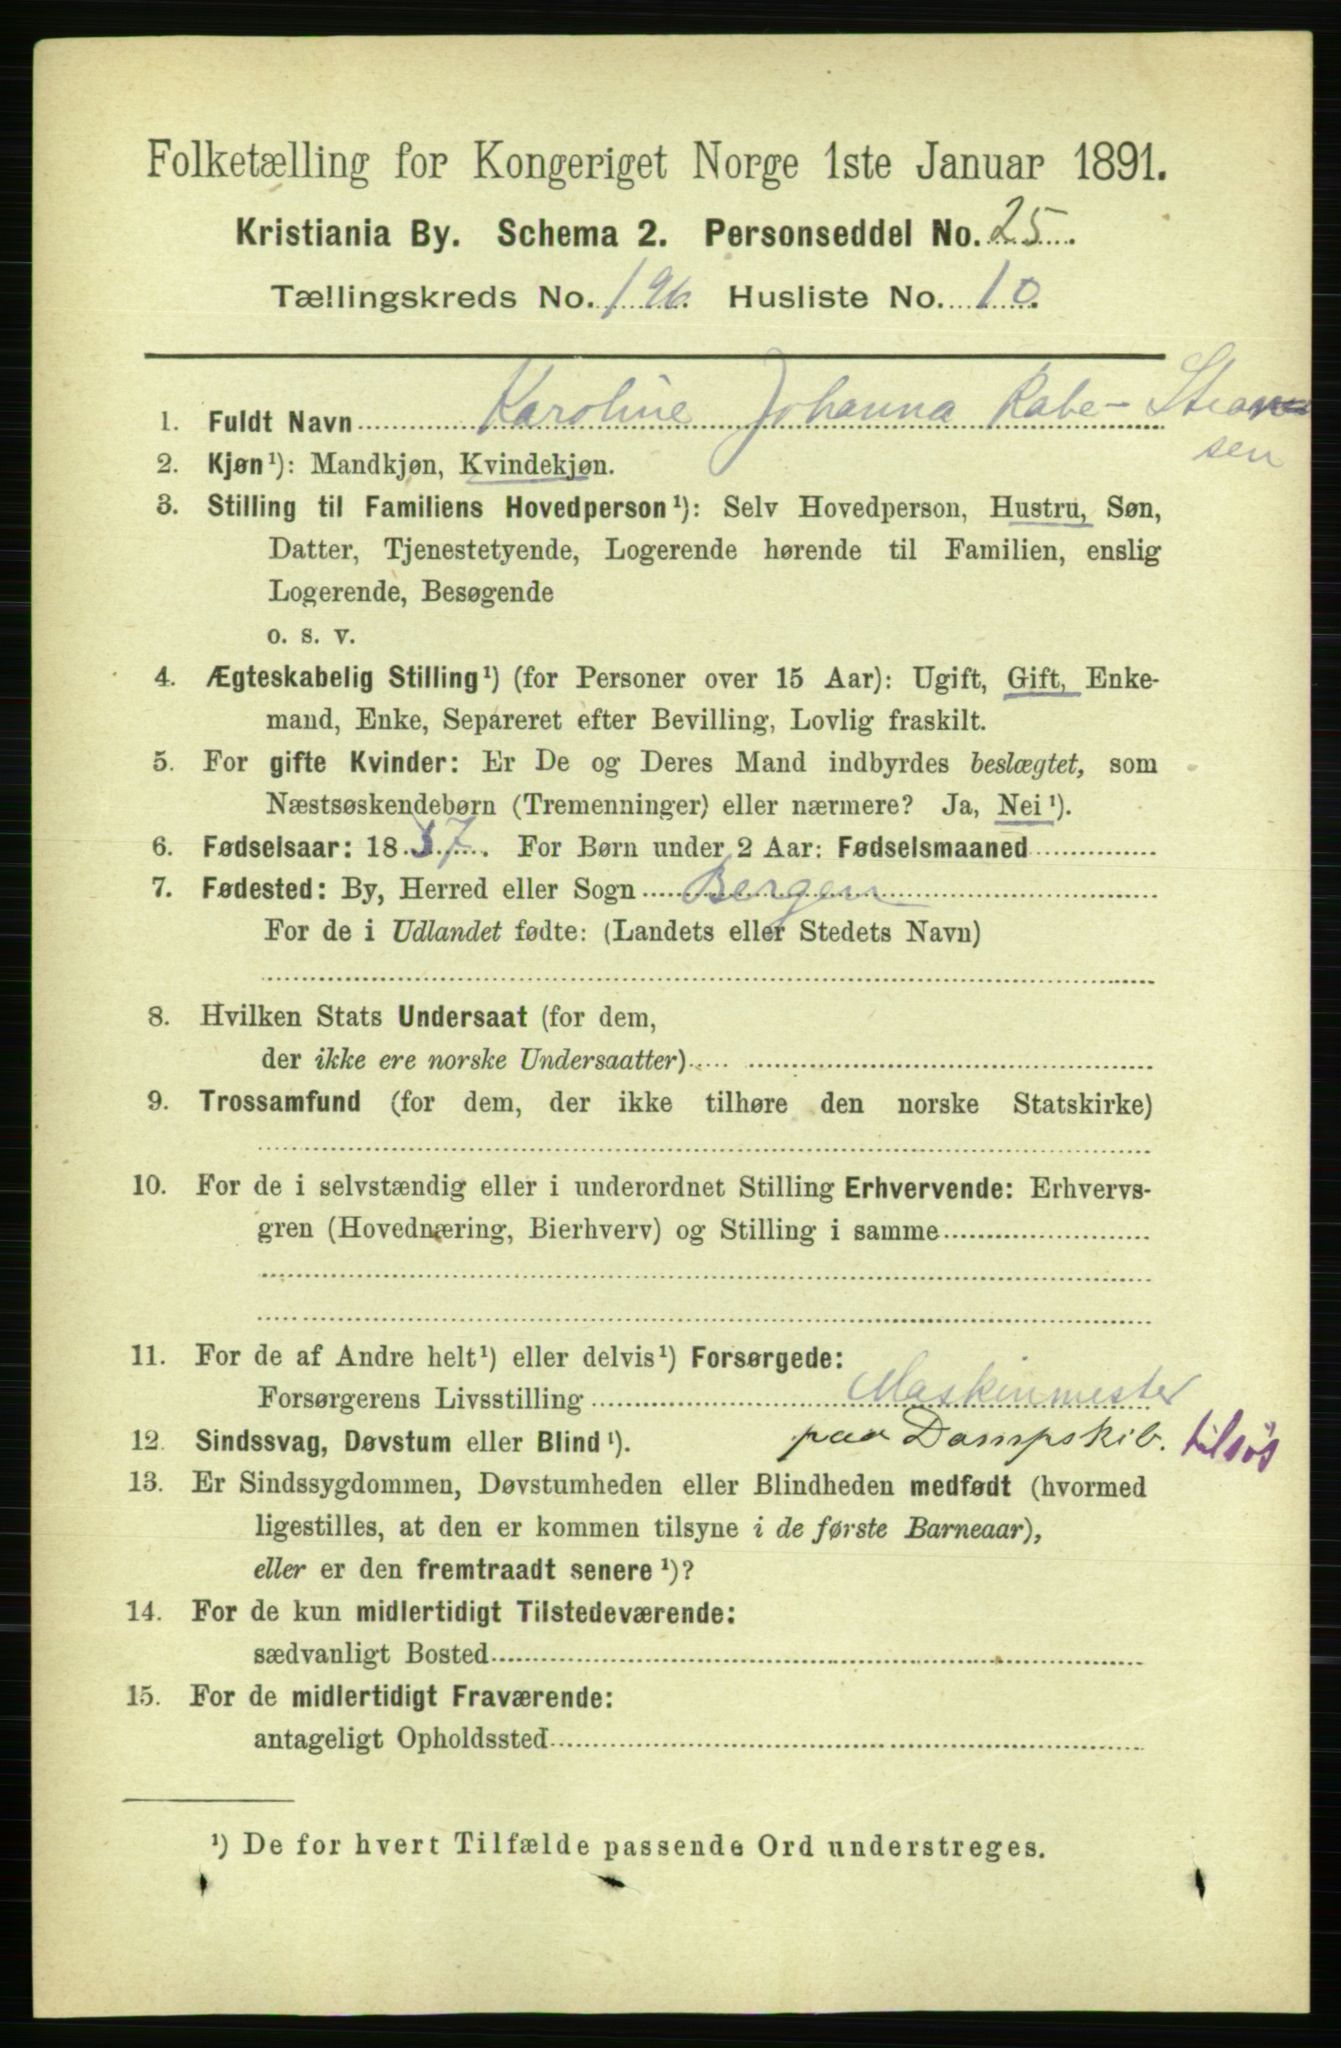 Folketælling for Kongeriget Norge 1ste Januar 1891.
Kristiania By. Schema 2. Personseddel No. 25.
Tællingskreds No. 196. Husliste No. 10.
1. Fuldt Navn Karoline Johanna Rabe-
sen
2. Kjøn¹): Mandkjøn, Kvindekjøn.
3. Stilling til Familiens Hovedperson¹): Selv Hovedperson, Hustru, Søn,
Datter, Tjenestetyende, Logerende hørende til Familien, enslig
Logerende, Besøgende
o. s. v.
4. Ægteskabelig Stilling¹) (for Personer over 15 Aar): Ugift, Gift, Enke-
mand, Enke, Separeret efter Bevilling, Lovlig fraskilt.
5. For gifte Kvinder: Er De og Deres Mand indbyrdes beslægtet, som
Næstsøskendebørn (Tremenninger) eller nærmere? Ja, Nei¹).
6. Fødselsaar: 18 . For Børn under 2 Aar: Fødselsmaaned
7. Fødested: By, Herred eller Sogn Bergen
For de i Udlandet fødte: (Landets eller Stedets Navn)
8. Hvilken Stats Undersaat (for dem,
der ikke ere norske Undersaatter)
9. Trossamfund (for dem, der ikke tilhøre den norske Statskirke)
10. For de i selvstændig eller i underordnet Stilling Erhvervende: Erhvervs-
gren (Hovednæring, Bierhverv) og Stilling i samme
11. For de af Andre helt¹) eller delvis¹) Forsørgede:
Forsørgerens Livsstilling Maskinmester
12. Sindssvag, Døvstum eller Blind¹). paa Dampskib. tilsøs
13. Er Sindssygdommen, Døvstumheden eller Blindheden medfødt (hvormed
ligestilles, at den er kommen tilsyne i de første Barneaar),
eller er den fremtraadt senere¹)?
14. For de kun midlertidigt Tilstedeværende:
sædvanligt Bosted
15. For de midlertidigt Fraværende:
antageligt Opholdssted
¹) De for hvert Tilfælde passende Ord understreges.